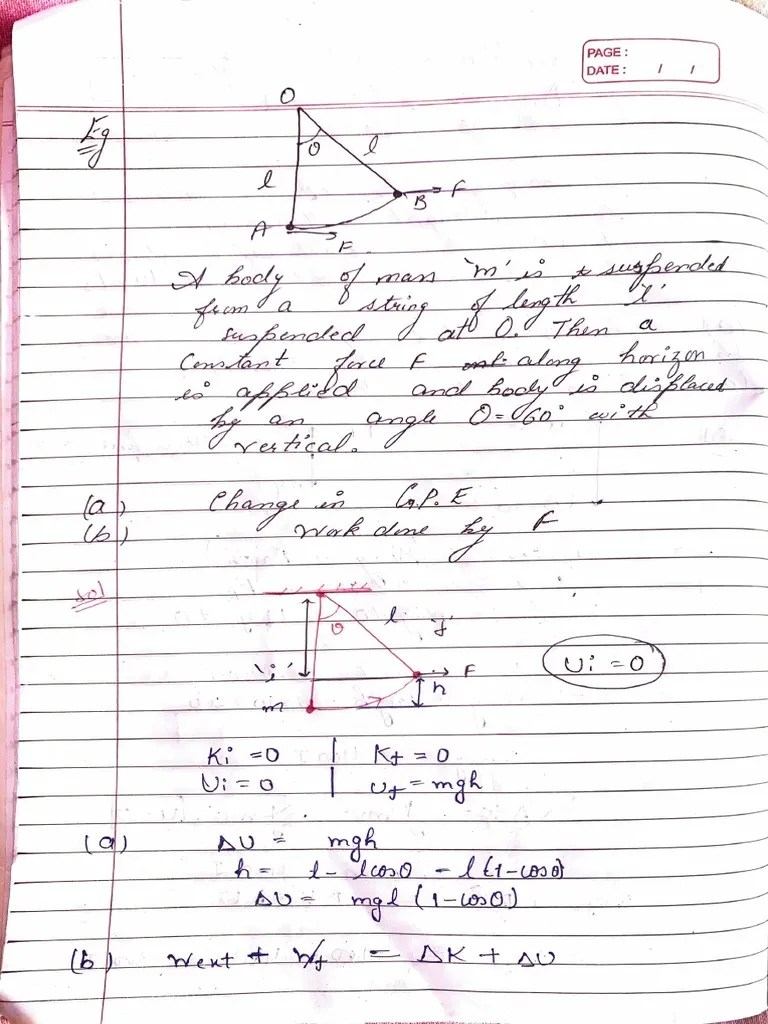 PAGE :
DATE : / /
O
Eg
θ l
l
B F
A
F
A body of mass 'm' is suspended
from a string of length 'l'
suspended at O. Then a
constant force F along horizon
is applied and body is displaced
by an angle θ = 60° with
vertical.
(a) Change in G.P.E
(b) Work done by F
Sol
θ l 'f'
'i' F
h
m
Ui = 0
Ki = 0 | Kf = 0
Ui = 0 | Uf = mgh
(a) ΔU = mgh
h = l - lcosθ = l(1-cosθ)
ΔU = mgl (1-cosθ)
(b) Wext + Wf = ΔK + ΔU